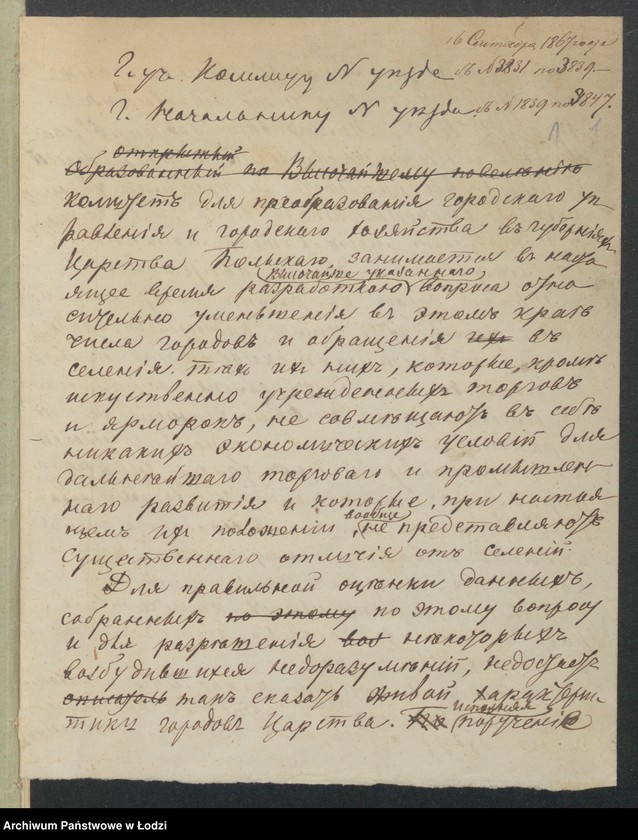 16 Сентября 1867 года
Г. уч. Комису N уѣзда съ N 3831 по 3839
Г. Начальнику N уѣзда съ N 1839 по 1847.
1 1
открытый
Образованный по Высочайшему повелѣнію
комитетъ для преобразованія городскаго уп
равленія и городскаго хозяйства въ губерніяхъ
Царства Польскаго, занимается въ насто
Высочайше указаннаго
ящее время разработкою вопроса отно
сительно уменьшенія въ этомъ краѣ
числа городовъ и обращенія ихъ въ
селенія тѣхъ изъ нихъ, которые, кромѣ
искуственно учрежденныхъ торговъ
и ярморокъ, не совмѣщаютъ въ себѣ
никакихъ экономическихъ условій для
дальнѣйшаго торговаго и промышлен
наго развитія и которые, при настоя
вообще
щемъ ихъ положеніи, не представляютъ
существеннаго отличія отъ селеній.
Для правильной оцѣнки данныхъ,
собранныхъ по этому по этому вопросу
и для разрѣшенія воз нѣкоторыхъ
возбудившихся недоразумѣній, недостаетъ
такъ сказать живой характерис
исполняя
тики городовъ Царства. По порученіе
Archiwum Państwowe w Łodzi